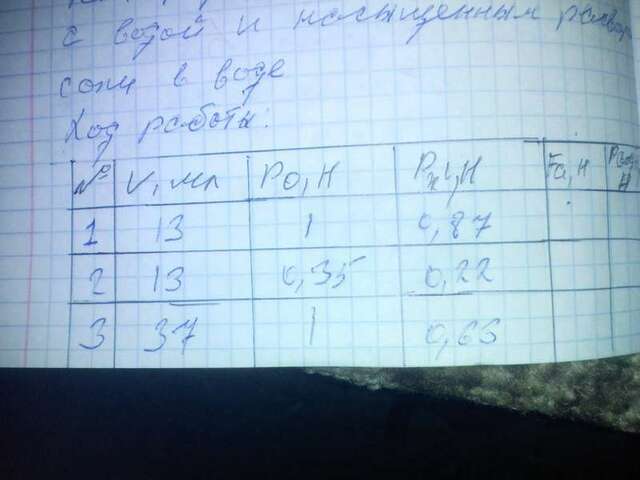 с водой и насыщенным раствор
соли в воде
Ход работы:
№ V, мл P0, H P1, H Fa, H
1 13 1 0,87
2 13 0,35 0,22
3 37 1 0,63